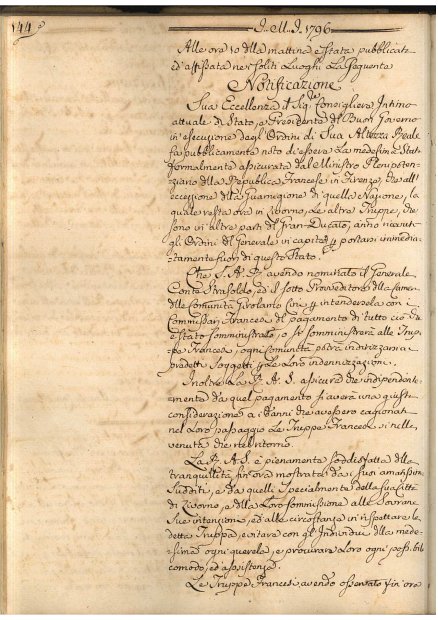 144
I. M. I. 1796
Alle ore 10 della mattina è stata pubblicata
ed affissata nei soliti Luoghi La seguente
Notificazione
Sua Eccellenza il Sig.re Consigliere Intimo
attuale di Stato, e Presidente del Buon Governo
in esecuzione degl'Ordini di Sua Altezza Reale
fa pubblicamente noto di essere La medesima Stata
formalmente assicurata dal Ministro Plenipoten-
ziario della Republica Francese in Firenze, che all'
eccezione della Guarnigione di quella Nazione, la
quale resta ora in Livorno, Le altre Truppe, che
sono in altre parti del Gran-Ducato, anno ricevuti
gli Ordini del Generale in capite di portarsi immedia-
tamente fuori di questo Stato.
Che S. A. R. avendo nominato il Generale
Conte Strasoldo, ed il sotto Provveditore della Camera
delle Comunità Girolamo Cini p intendersela con i
Commissari Francesi del pagamento di tutto ciò che
è stato somministrato, o si somministrerà alle Trup-
pe Francesi, ogni comunità potrà indirizzarsi ai
predetti Soggetti p Le Loro indennizzazioni.
Inoltre La R. A. S. assicura che indipendente-
mente da quel pagamento si averà una giusta
considerazione a i danni che avessero cagionati
nel Loro passaggio Le Truppe Francesi sì nella
venuta che nel ritorno.
La R. A. S. è pienamente soddisfatta della
tranquillità fin'ora mostrata da i suoi amatissimi
Sudditi, e da quelli specialmente della sua Città
di Livorno, e della Loro sommissione alle Sovrane
Sue intenzioni, ed alle circostanze in rispettare le
dette Truppe, evitare con gl'Individui della mede-
sima ogni querela, e procurare a Loro ogni possibile
comodo, ed assistenza.
Le Truppe Francesi avendo osservato fin'ora